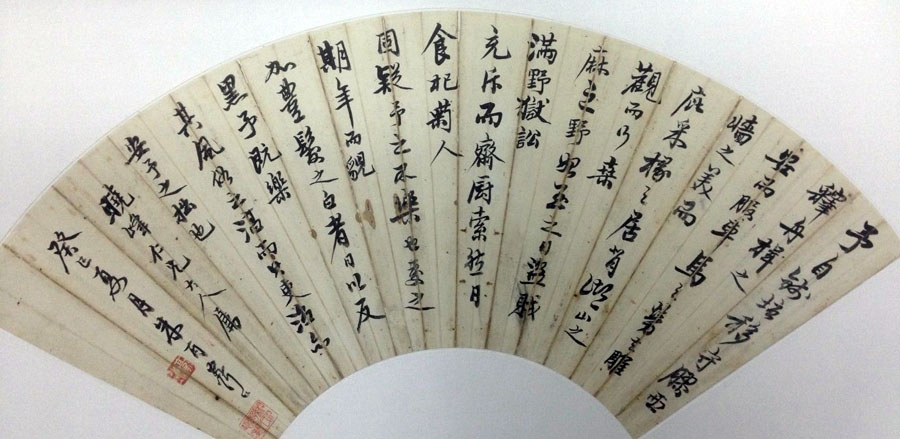 予自錢塘移守膠西
釋舟楫之
安而服車馬之勞去雕
墻之美而
庇采椽之居背湖山之
觀而行桑
麻之野始至之日盜賊
滿野獄訟
充斥而齋厨索然日
食杞菊人
固疑予之不樂也處之
期年而貌
加豐髮之白者日以反
黑予既樂
其風俗之淳而其吏亦
安予之拙也
曉峰仁兄大人屬
癸巳夏月朱